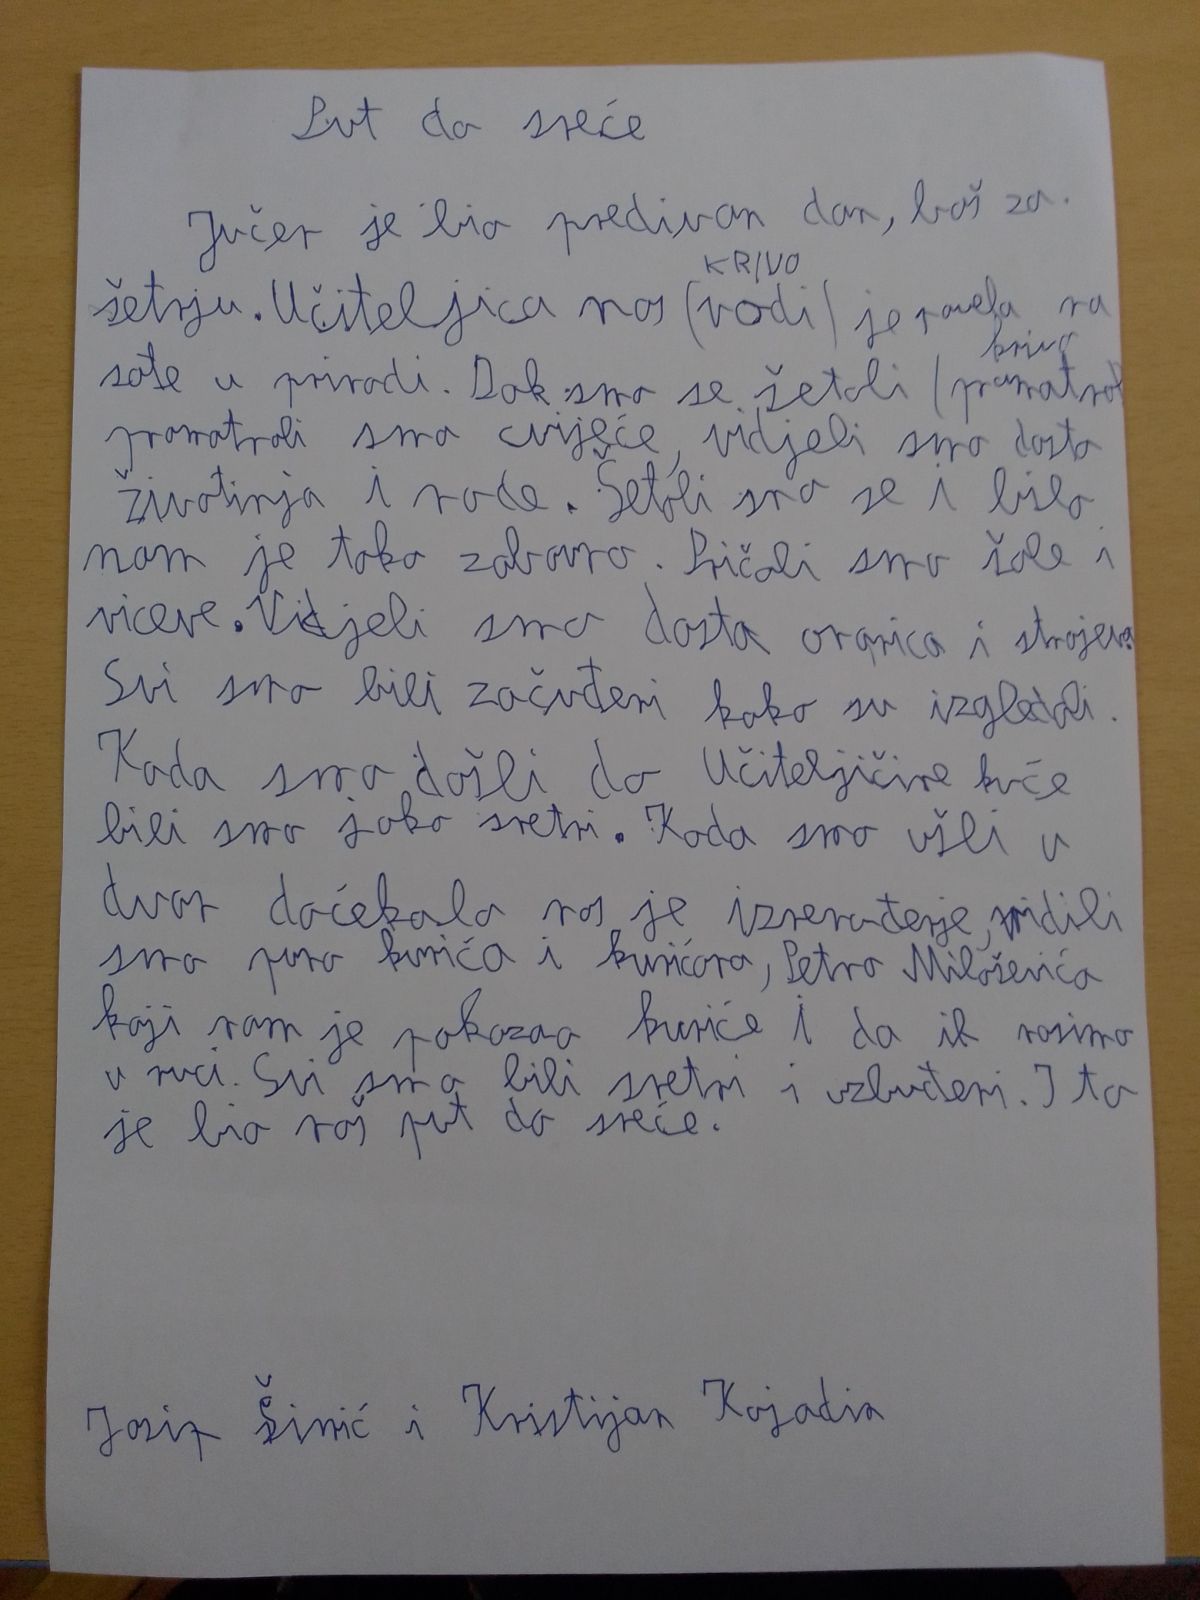 Put do sreće
Jučer je bio predivan dan, baš za
šetnju. Učiteljica nas (vodi) je povela na
KRIVO
sate u prirodi. Dok smo se šetali (promatrali
krivo
promatrali smo cvijeće, vidjeli smo dosta
životinja i rode. Šetali smo se i bilo
nam je tako zabavno. Pričali smo šale i
viceve. Vidjeli smo dosta oranica i strojeva
Svi smo bili začuđeni kako su izgledali.
Kada smo došli do Učiteljičine kuće
bili smo jako sretni. Kada smo ušli u
dvor dočekalo nas je iznenađenje, vidili
smo puno kunića i kunićara, Petra Miloševića
koji nam je pokazao kuniće i da ih nosimo
u ruci. Svi smo bili sretni i uzbuđeni. I to
je bio naš put do sreće.
Josip Šimić i Kristijan Kojadin